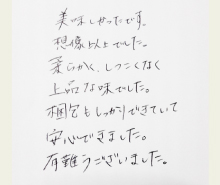 美味しかったです。
想像以上でした。
柔らかく、しつこくなく
上品な味でした。
梱包もしっかりできていて
安心できました。
有難うございました。